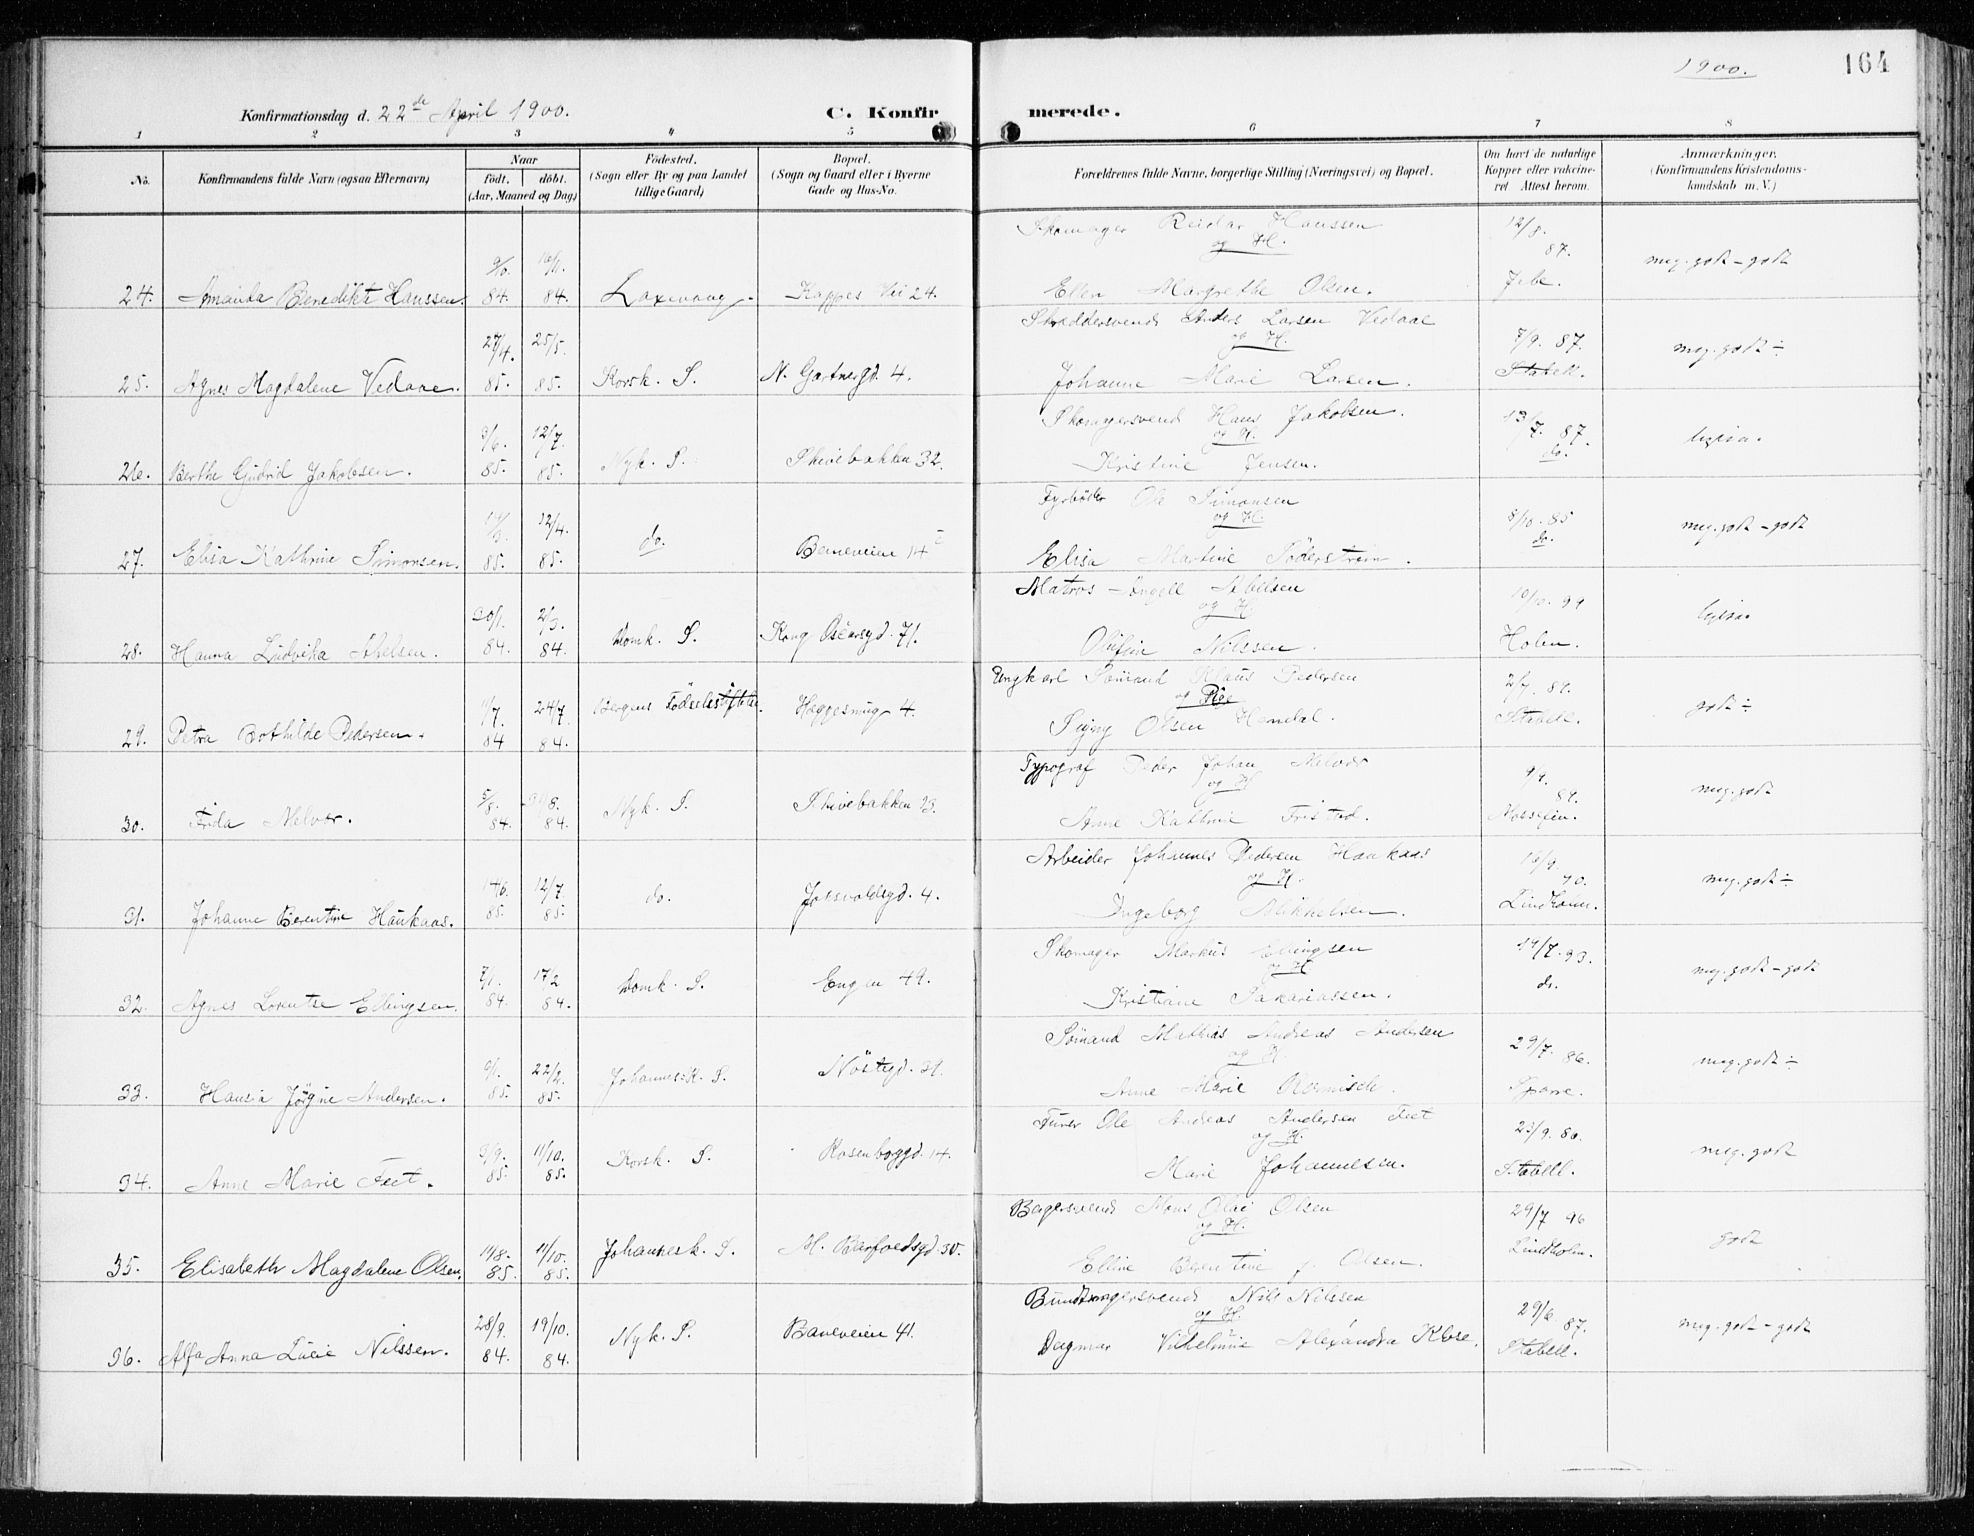 1900.
164
Konfirmationsdag d. 22de April 1900.
C. Konfirmerede.
1 2 3 4 5 6 7 8
No.
Konfirmandens fulde Navn (ogsaa Efternavn)
Naar
født. døbt.
(Aar, Maaned og Dag)
Fødested.
(Sogn eller By og paa Landet
tillige Gaard)
Bopæl.
(Sogn og Gaard eller i Byerne
Gade og Hus-No.
Forældrenes fulde Navne, borgerlige Stilling (Næringsvei) og Bopæl.
Om havt de naturlige
Kopper eller vakcine-
ret. Attest herom.
Anmærkninger.
(Konfirmandens Kristendoms-
kundskab m. V.)
Skomager Reidar Hanssen 12/8.
9/10. 16/11. og H. 87. meg. godt - godt
24. Amanda Benedikte Hanssen. 84. 84. Laxevaag. Kappes Vei 24. Ellen Margrethe Olsen.
Skræddersvend Anders Larsen Vedaae
27/4. 25/5. og H. 7/9. 87. meg. godt ÷
25. Agnes Magdalene Vedaae. 85. 85. Korsk. S. N. Gartnergd. 4. Johanne Marie Larsen. Stabell.
Skomagersvend Hans Jakobsen. 13/7. 87.
3/6. 12/7. og H. do.
26. Berthe Gudrid Jakobsen. 85. 85. Nyk. S. Skivebakken 32. Kristine Jensen.
Fyrbøder Ole Simonsen
12/4. og H. 8/10. 85 meg. godt - godt
27. Elisa Kathrine Simonsen. 85. 85. do. Baneveien 14 Elisa Martine Söderström. do.
Matros Angell Abelsen
30/1. 2/3. og H 10/10. 99
28. Hanna Ludvika Abelsen. 84. 84. Domk. S. Kong Oscarsgd. 71. Nilssen. Holen.
Ungkarl Sömand Klaus Pedersen
1/7. 24/7. og Pige godt ÷
29. Petra Bothilde Pedersen. 84 84. Bergens Födselsstiftelse. Heggesmug 4. Signy Olsen Stabell.
Typograf Peder Johan Melvær
5/8. og H meg. godt
30. Frida Melvær. 84. 84. Nyk. S. Skivebakken 23. Anne Kathrine
Arbeider Johannes Pedersen Haukaas
14/6. 12/7. og H. meg. godt ÷
31. Johanne Berentine Haukaas. 85. 85. do. 4. Ingeborg Mikkelsen. Lindholm.
Skomager Markus Ellingsen 19/7. 93.
7/1. 17/2 og H meg. godt - godt
32. Agnes Lorentze Ellingsen. 84. 84. Domk. S. Engen 49. Kristiane Sakariassen. do.
Sömand Mathias Andreas Andersen
9/1. 22/2. og H. 29/7. 86. meg. godt ÷
33. Hansia Jörgine Andersen. 85. 85. Johannesk. S. Nöstegd. Anne Marie Sparre.
Ole Andreas Andersen Feet
9/9. 11/10. og H. meg. godt
34. Anne Marie Feet. 85. 85. Korsk. S. Rosenborggd. 14. Marie Johannesen. Stabell.
Bagersvend Mons Olai Olsen 29/7 96
11/8. 11/10. og H. godt
35. Elisabeth Magdalene Olsen. 85. 85. Johannesk. S. M. Barfoedsgd 30. Elline Berentine f. Olsen. Lindholm.
Bundtmagersvend Nils Nilssen
28/9. 19/10. og H. 29/6. 87. meg. godt - godt
36. Alfa Anna Lucie Nilssen. 84. 84. Nyk. S. Baneveien 41. Dagmar Vilhelmine Alexandra Klose. Stabell.